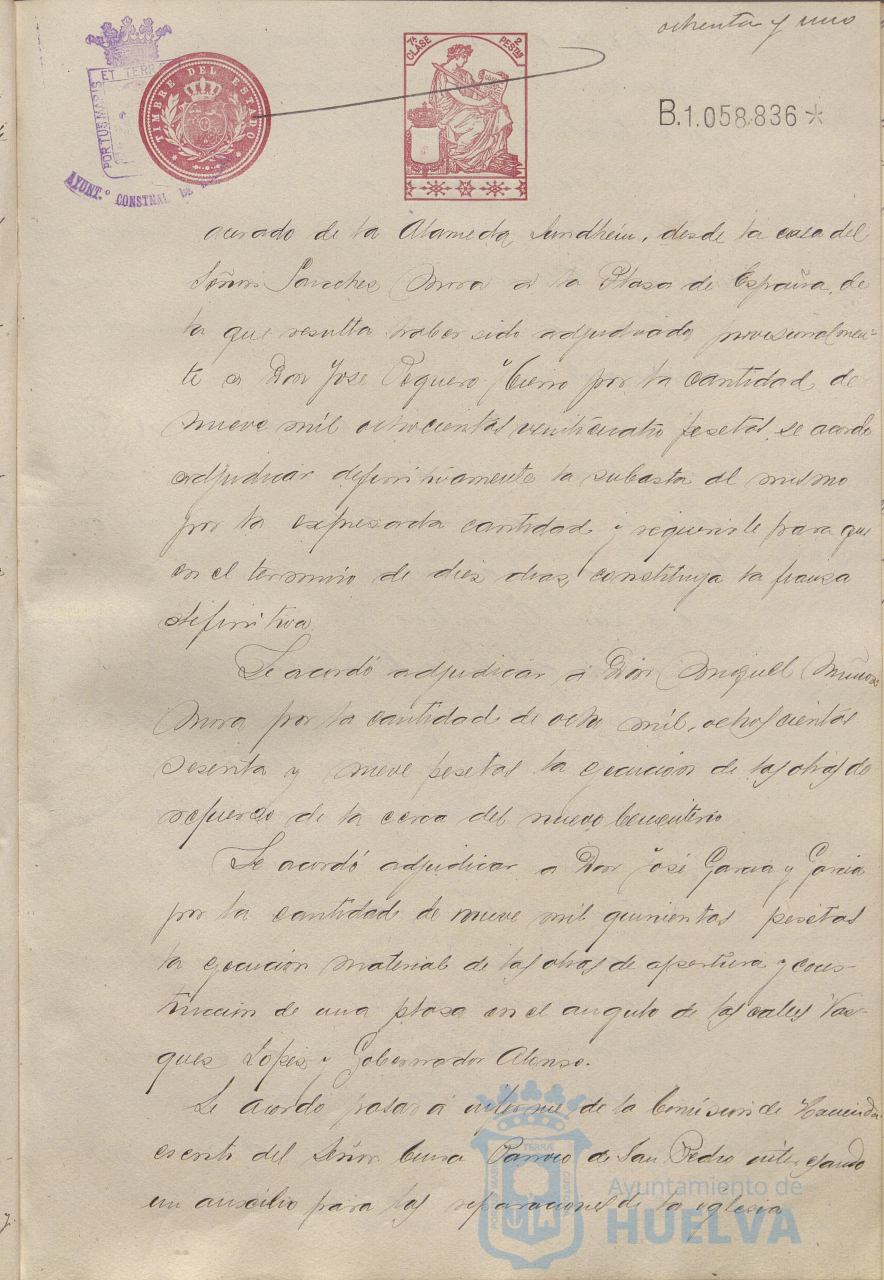 ochenta y uno
PORTUS MARIS ET TERRÆ
TIMBRE DEL ESTADO
AYUNT.º CONSTNAL DE
7ª CLASE
2 PESTAS
B.1.058.836
acerado de la Alameda Sundhein, desde la casa del
Señor Sanchez Mora a la Plasa de España, de
la que resulta haber sido adjudicado provisionalmen-
te a Don José Peguero y Cierro por la cantidad de
nueve mil ochocientas veinticuatro pesetas, se acordo
adjudicar definitivamente la subasta al mismo
por la expresada cantidad y requerirle para que
en el termino de dies dias, constituya la fianza
definitiva.
Se acordó adjudicar a Don Miguel Muñoz
Mora por la cantidad de ocho mil, ochoscientas
sesenta y nueve pesetas la ejecucion de las obras de
refuerzo de la cerca del nuevo Cementerio
Se acordó adjudicar a Don José Garcia y Garcia
por la cantidad de nueve mil quinientas pesetas
la ejecucion material de las obras de apertura y cons-
truccion de una plasa en el angulo de las calles Vas-
ques Lopes y Gobernador Alonso.
Se acordó pasar á informe de la Comision de Hacienda
escrito del Señor Cura Parroco de San Pedro interesando
un auxilio para las reparaciones de la iglesia
Ayuntamiento de
HUELVA